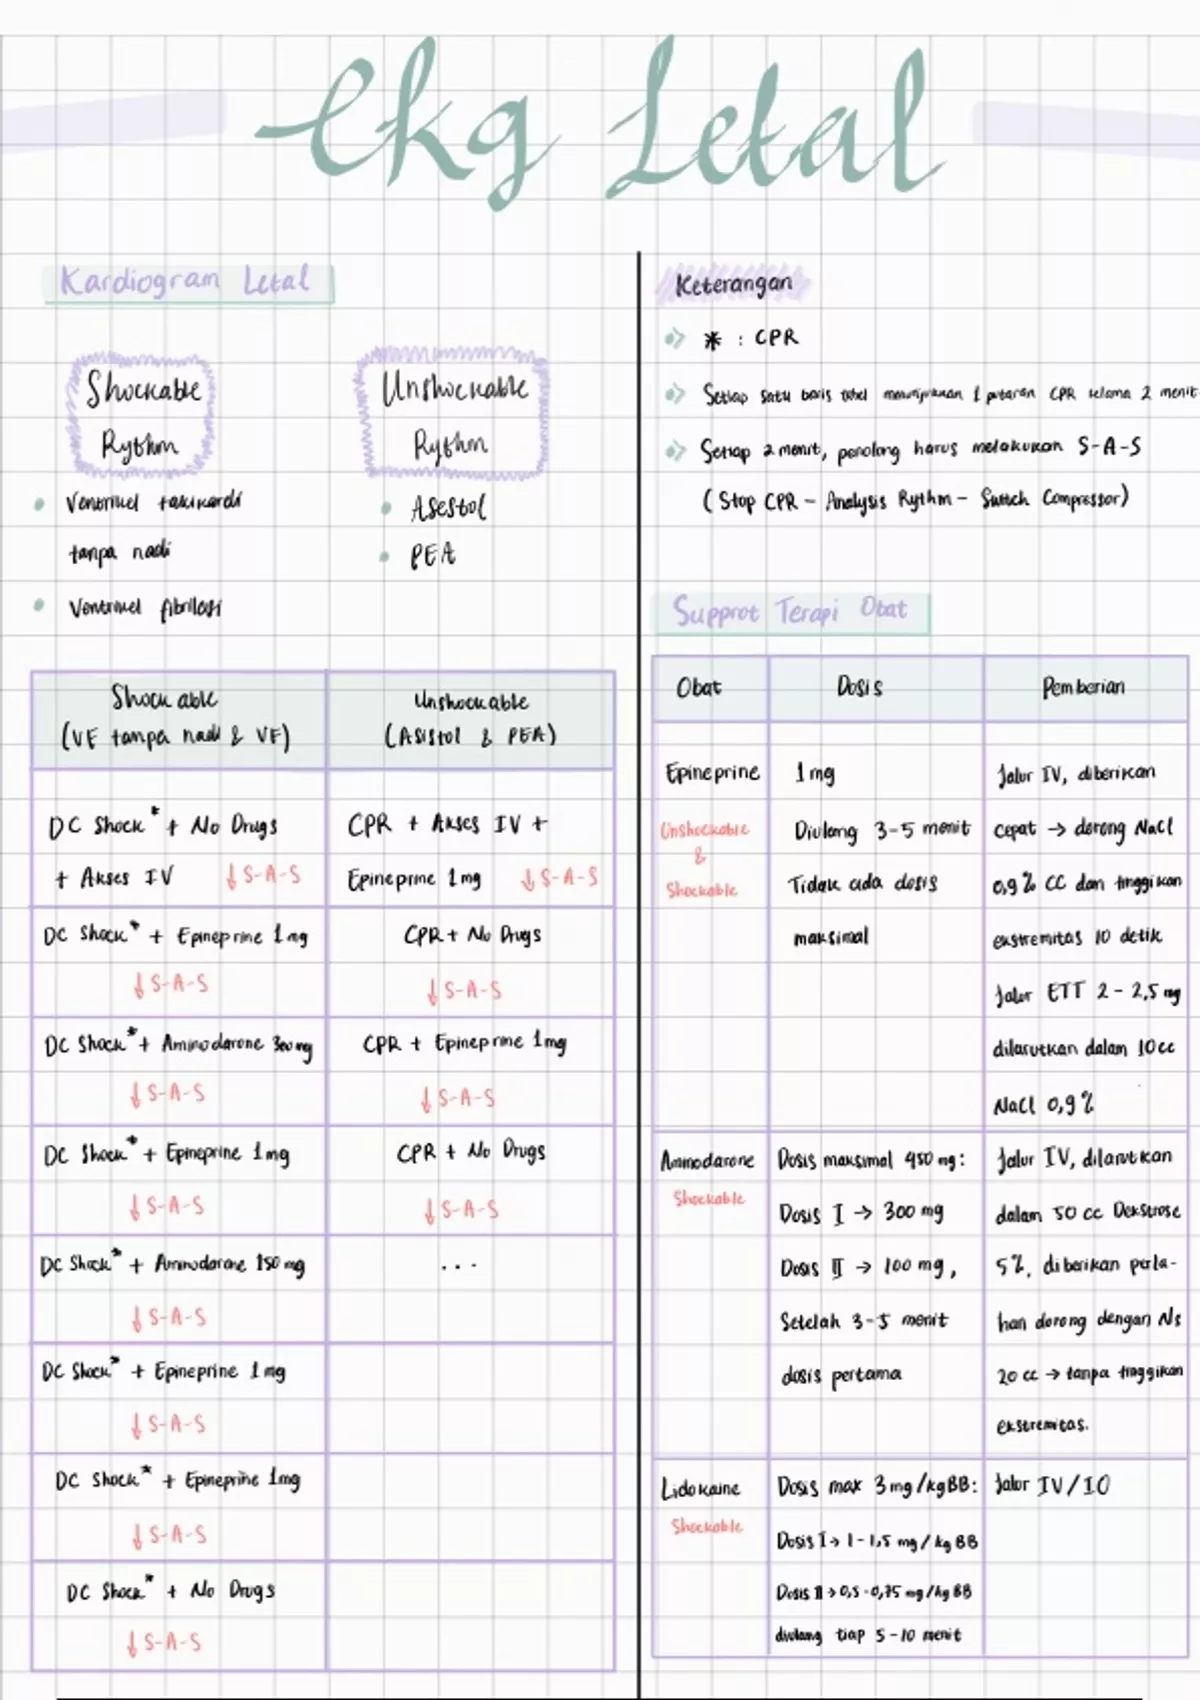 Ekg Letal
Kardiogram Letal
Shockable
Rythm
• Ventrikel takikardi
tanpa nadi
• Ventrikel fibrilasi
Unshockable
Rythm
• Asestol
• PEA
Shockable
(VE tanpa nadi & VE)
Unshockable
(Asistol & PEA)
DC Shock* + No Drugs
+ Akses IV ↓ S-A-S
CPR + Akses IV +
Epineprine 1 mg ↓ S-A-S
DC Shock* + Epineprine 1 mg
↓ S-A-S
CPR + No Drugs
↓ S-A-S
DC Shock* + Amiodarone 300 mg
↓ S-A-S
CPR + Epineprine 1 mg
↓ S-A-S
DC Shock* + Epineprine 1 mg
↓ S-A-S
CPR + No Drugs
↓ S-A-S
DC Shock* + Amiodarone 150 mg
↓ S-A-S
...
DC Shock* + Epineprine 1 mg
↓ S-A-S
DC Shock* + Epineprine 1 mg
↓ S-A-S
DC Shock* + No Drugs
↓ S-A-S
Keterangan
* : CPR
Setiap satu baris tabel menunjukkan 1 putaran CPR selama 2 menit
Setiap 2 menit, penolong harus melakukan S-A-S
(Stop CPR - Analysis Rythm - Switch Compressor)
Supprot Terapi Obat
Obat
Dosis
Pemberian
Epineprine
Unshockable
&
Shockable
1 mg
Diulang 3-5 menit
Tidak ada dosis
maksimal
Jalur IV, diberikan
cepat → dorong NaCl
0,9% CC dan tinggikan
ekstremitas 10 detik
Jalur ETT 2 - 2,5 mg
dilarutkan dalam 10 cc
NaCl 0,9%
Amiodarone
Shockable
Dosis maksimal 450 mg:
Dosis I → 300 mg
Dosis II → 100 mg,
Setelah 3-5 menit
dosis pertama
Jalur IV, dilarutkan
dalam 50 cc Dekstrose
5%, diberikan perla-
han dorong dengan Ns
20 cc → tanpa tinggikan
ekstremitas.
Lidokaine
Shockable
Dosis max 3 mg/kgBB:
Dosis I → 1 - 1,5 mg/kgBB
Dosis II → 0,5 - 0,75 mg/kgBB
diulang tiap 5-10 menit
Jalur IV/IO